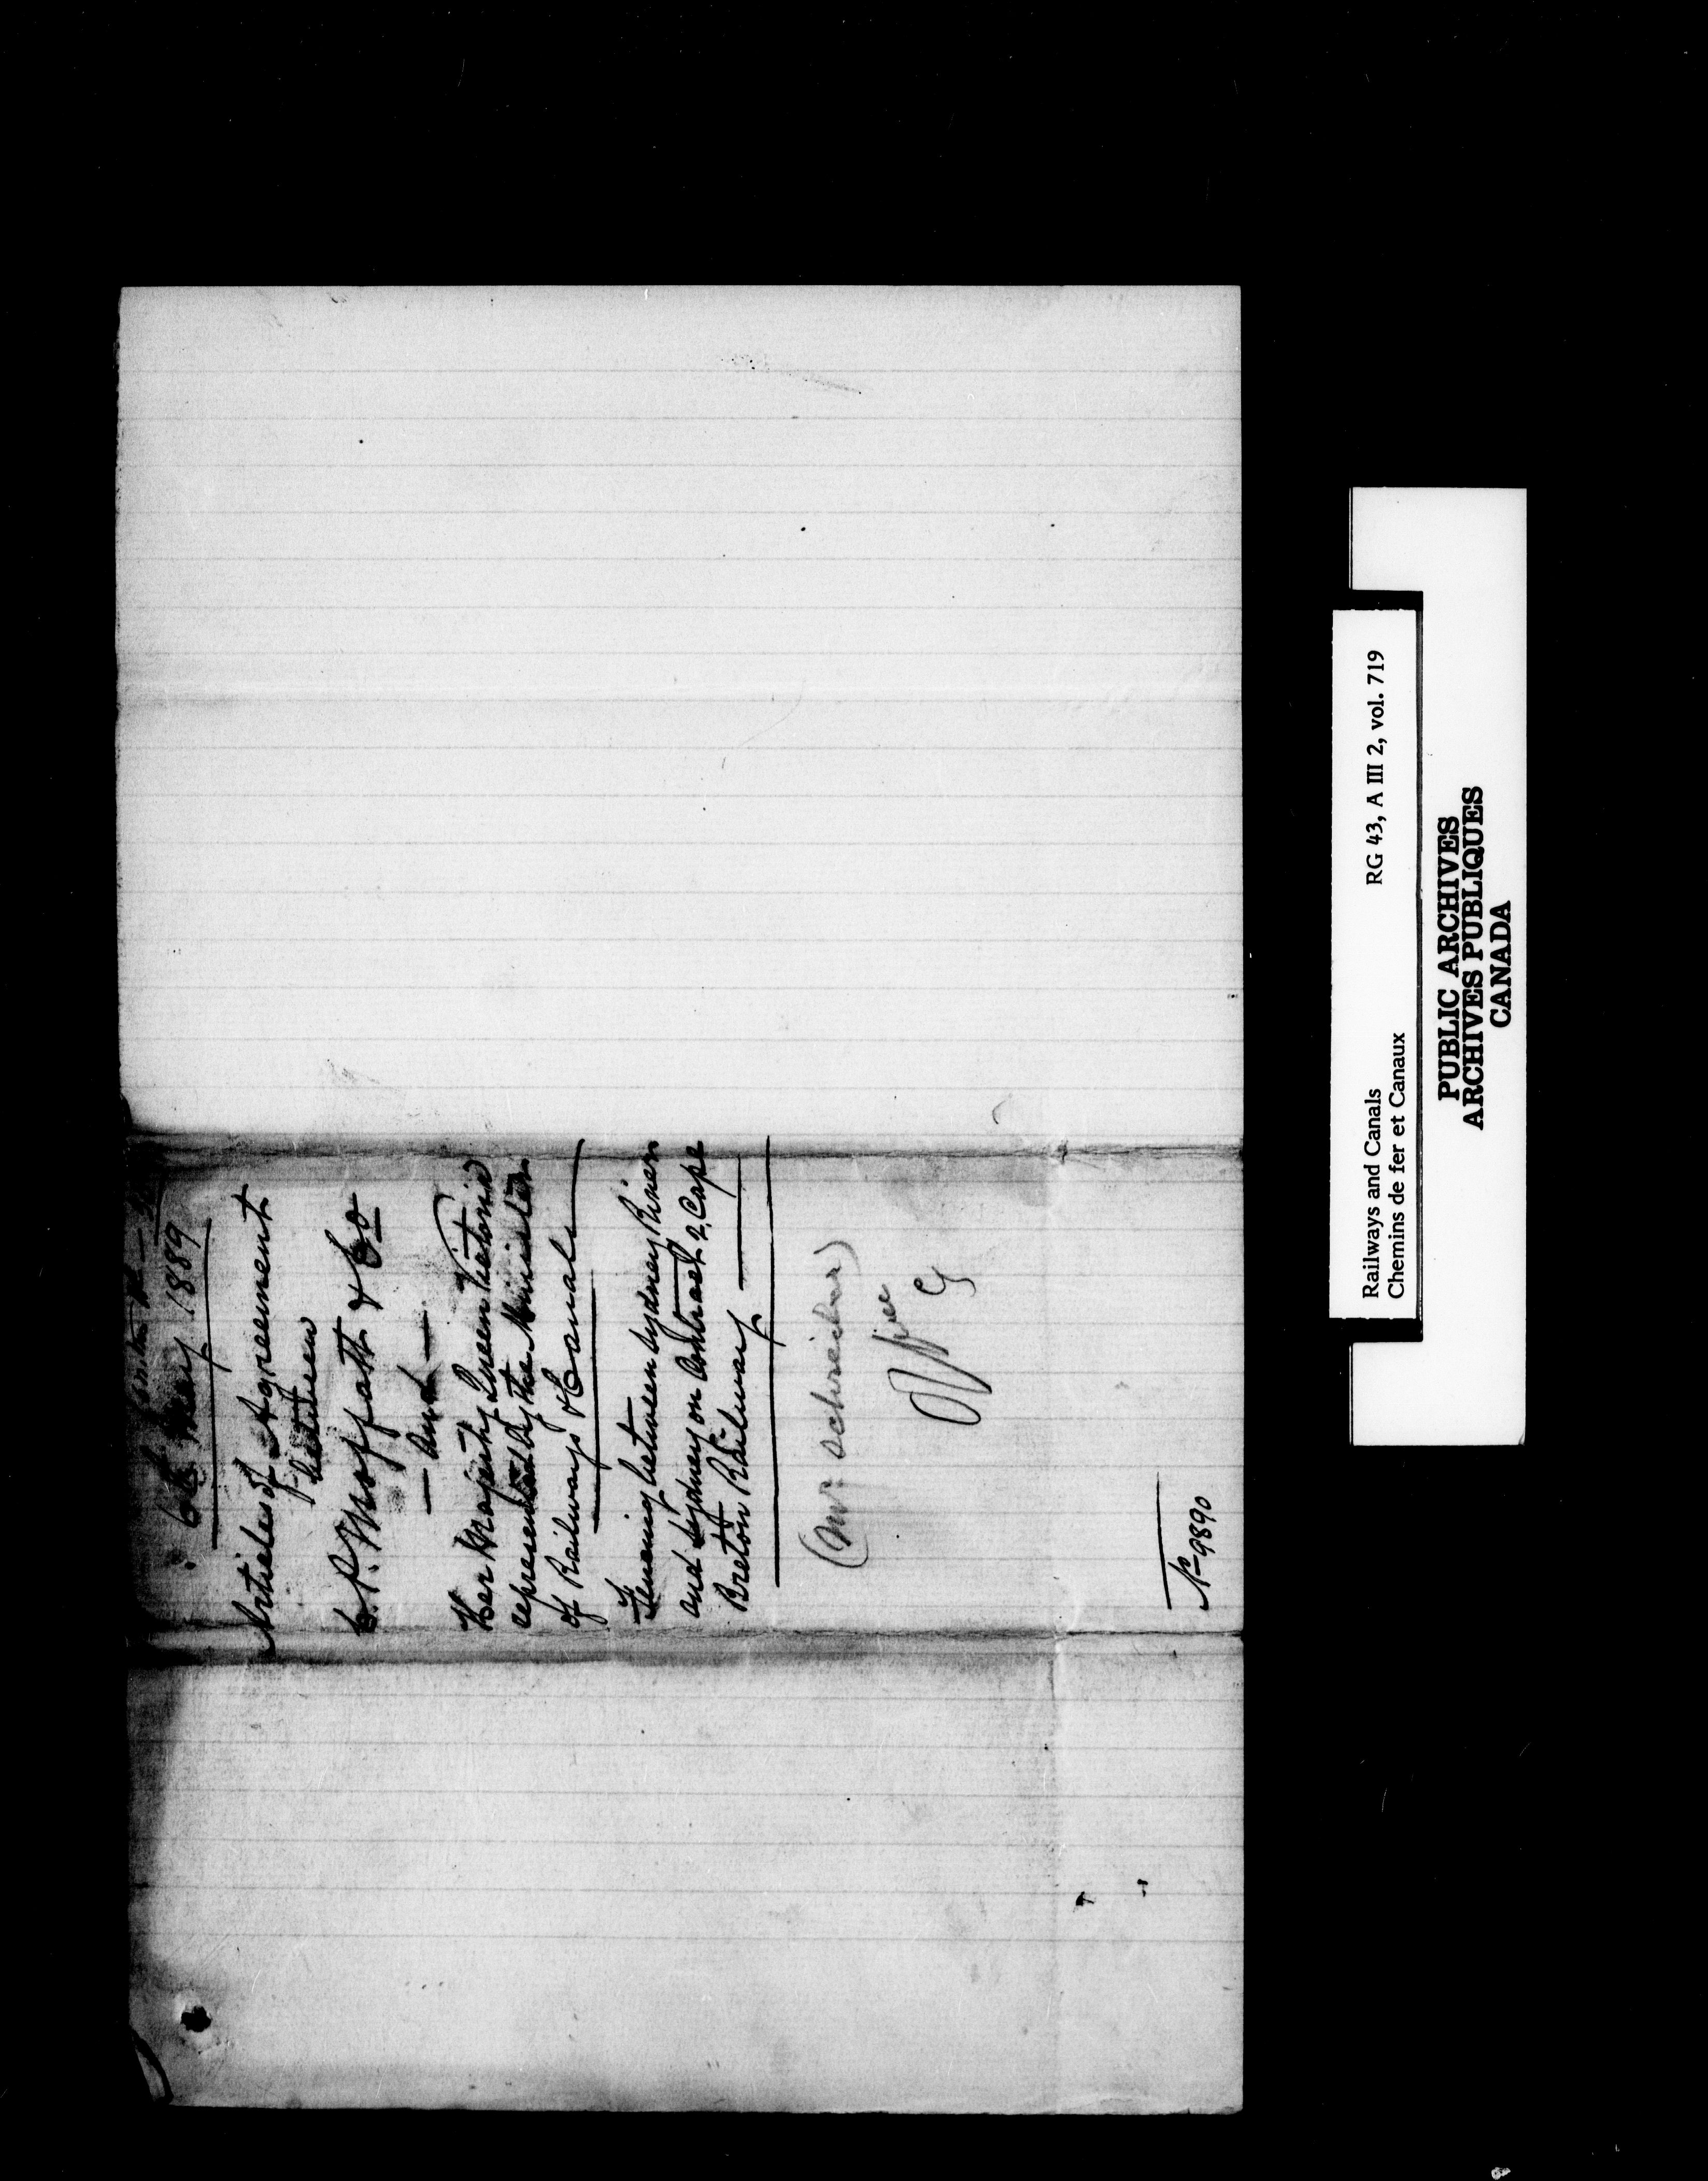 6th May 1889
Articles of Agreement
between
C. P. Moffatt & Co
— and —
Her Majesty Queen Victoria
represented by the Minister
of Railways & Canals
Fencing between Sydney River
and Sydney on Contract 2, Cape
Breton Railway
(Mr Schreiber)
Office
No 9890
Railways and Canals RG 43, A III 2, vol. 719
Chemins de fer et Canaux
PUBLIC ARCHIVES
ARCHIVES PUBLIQUES
CANADA